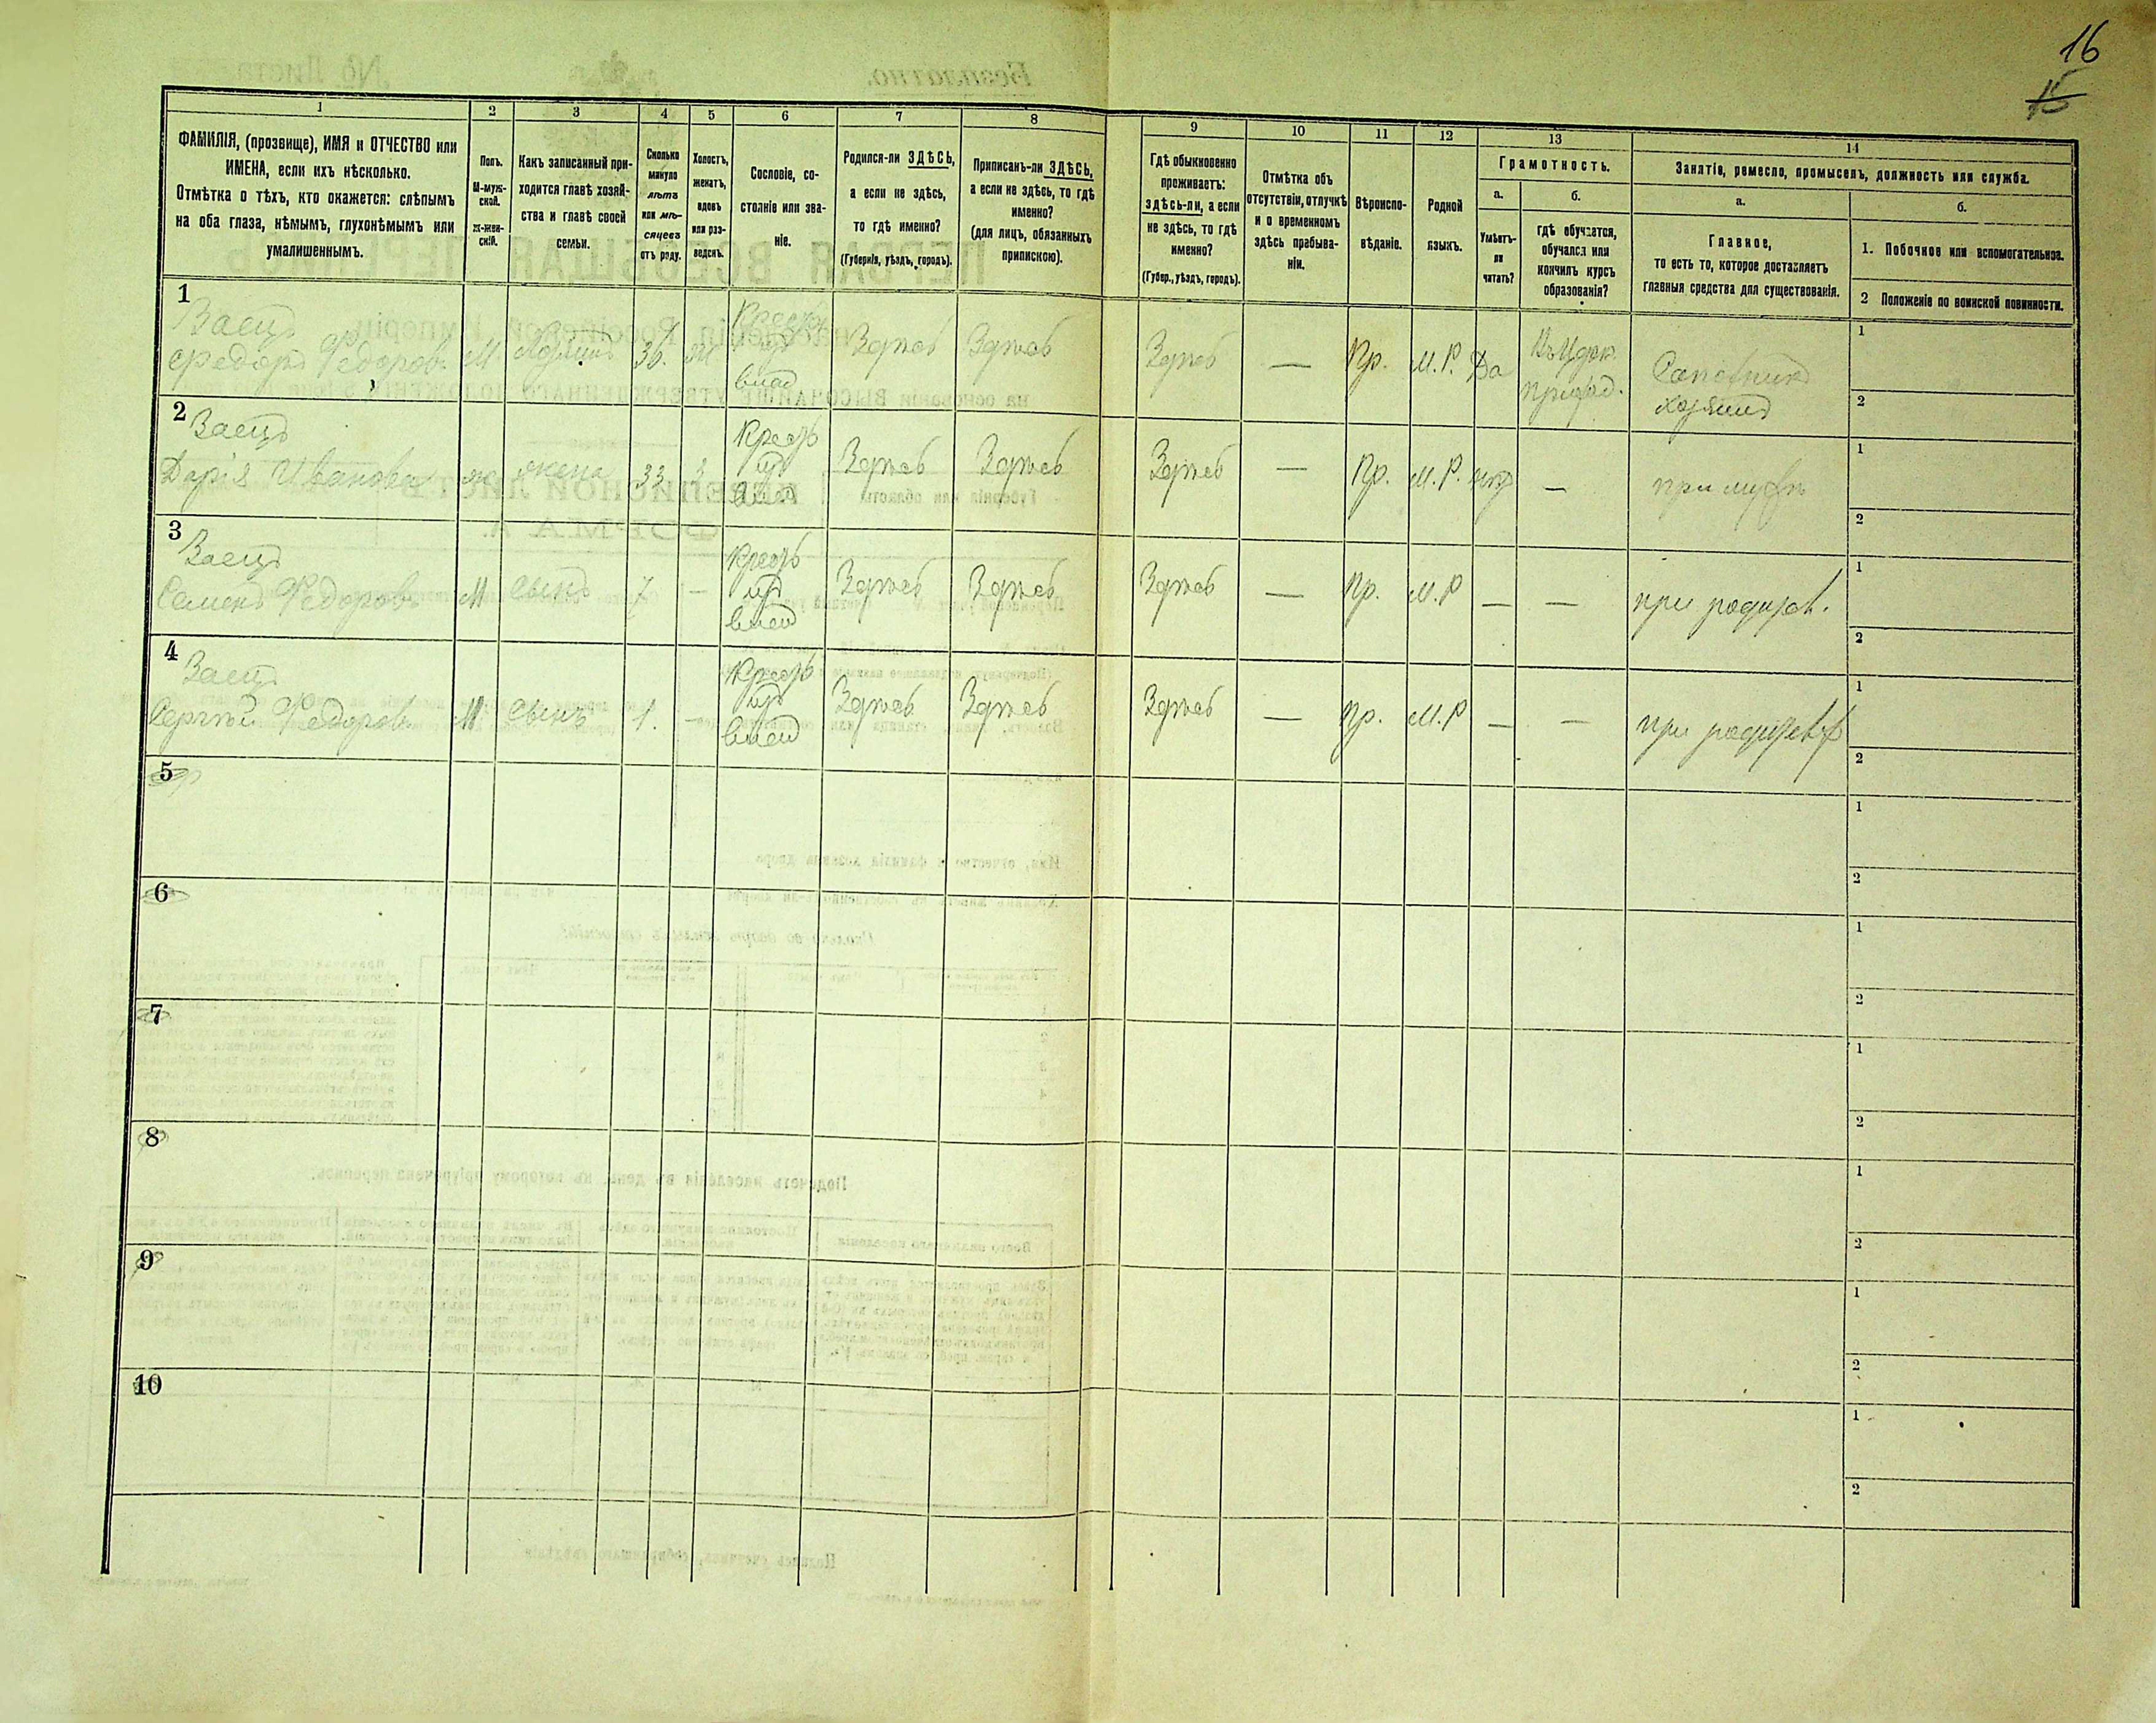 16
15
1
2
3
4
5
6
7
8
9
10
11
12
13
14
ФАМИЛІЯ, (прозвище), ИМЯ и ОТЧЕСТВО или
ИМЕНА, если ихъ нѣсколько.
Отмѣтка о тѣхъ, кто окажется: слѣпымъ
на оба глаза, нѣмымъ, глухонѣмымъ или
умалишеннымъ.
Полъ.
М-муж-
ской.
Ж-жен-
скій.
Какъ записанный при-
ходится главѣ хозяй-
ства и главѣ своей
семьи.
Сколько
минуло
лѣтъ
или мѣ-
сяцевъ
отъ роду.
Холостъ,
женатъ,
вдовъ
или раз-
веденъ.
Сословіе, со-
стояніе или зва-
ніе.
Родился-ли ЗДѢСЬ,
а если не здѣсь,
то гдѣ именно?
(Губернія, уѣздъ, городъ).
Приписанъ-ли ЗДѢСЬ,
а если не здѣсь, то гдѣ
именно?
(для лицъ, обязанныхъ
припискою).
Гдѣ обыкновенно
проживаетъ:
здѣсь-ли, а если
не здѣсь, то гдѣ
именно?
(Губер., уѣздъ, городъ).
Отмѣтка объ
отсутствіи, отлучкѣ
и о временномъ
здѣсь пребыва-
ніи.
Вѣроиспо-
вѣданіе.
Родной
языкъ.
Грамотность.
а.
Умѣетъ-
ли
читать?
б.
гдѣ обучается,
обучался или
кончилъ курсъ
образованія?
Занятіе, ремесло, промыселъ, должность или служба.
а.
Главное,
то есть то, которое доставляетъ
главныя средства для существованія.
б.
1. Побочное или вспомогательное.
2 Положеніе по воинской повинности.
1
Заецъ
Федоръ Федоровъ М. Хозяинъ 36. Ж Здѣсь Здѣсь Здѣсь — Пр. М.Р. Да
Сапожникъ
хозяинъ
1
2
2
Заецъ
Дарія Иванова ж жена 33 З Здѣсь Здѣсь Здѣсь — Пр. М.Р. нѣт — при мужѣ
1
2
3
Заецъ
Семенъ Федоровъ М сынъ 7 — Здѣсь Здѣсь Здѣсь — Пр. М.Р — — при родител.
1
2
4
Заецъ
Сергѣй Федоровъ М сынъ 1. — Здѣсь Здѣсь Здѣсь — Пр. М.Р — — при родителѣ
1
2
5
1
2
6
1
2
7
1
2
8
1
2
9
1
2
10
1
2